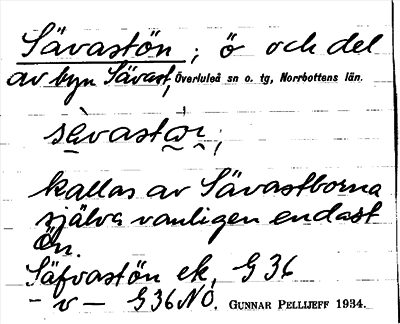 Sävastön ; ö och del
av byn Sävast, Överluleå sn o. tg, Norrbottens län.
kallas av Sävastborna
själva vanligen endast
Ön.
Säfvastön ek. G 36
- v - G 36 NO. GUNNAR PELLIJEFF 1934.